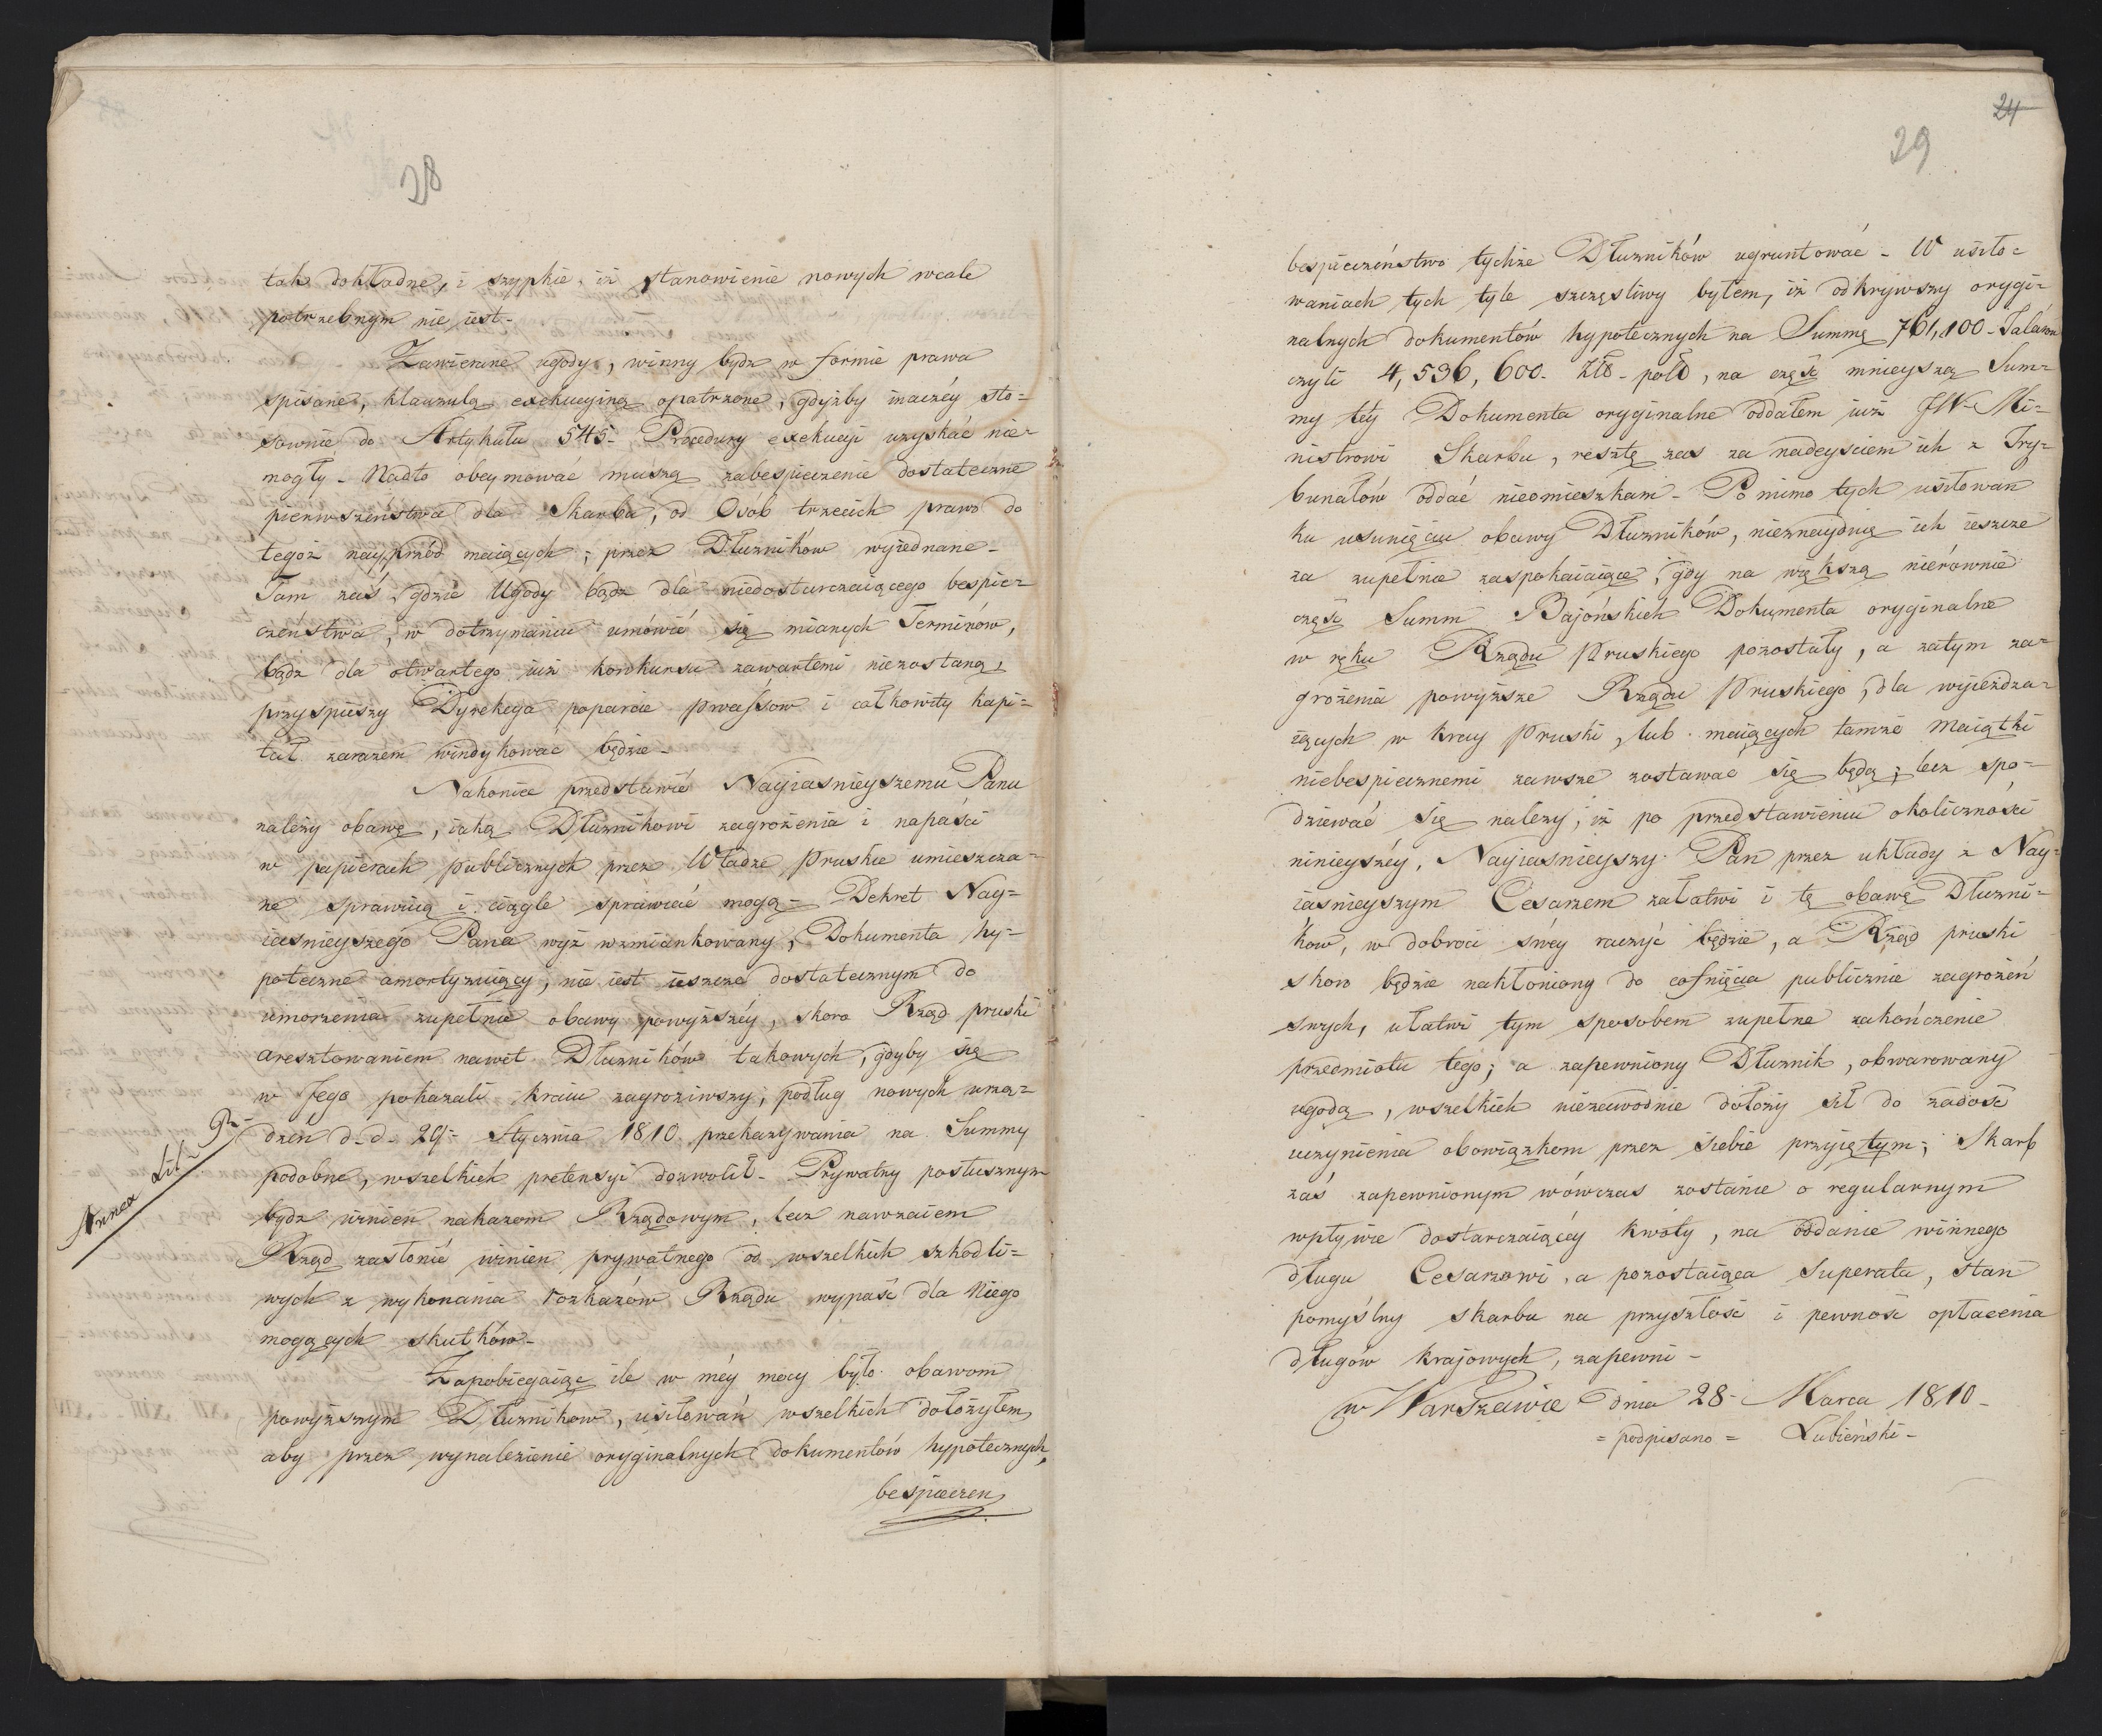 28
tak dokładne, i szypkie, iż stanowienie nowych wcale
potrzebnym nie iest-
Zawierane ugody, winny bydz w formie prawa
spisane, klauzulą exekucyiną opatrzone, gdyżby inaczéy sto-
sownie do Artykułu 545- Procedury exekucyi uzyskać nie-
mogły- Nadto obeymować muszą zabespieczenie dostateczne
pierwszeństwa dla Skarbu, od Osób trzecich prawo do
tegoż nayprzód maiących, przez Dłużników wyiednane-
Tam zaś, gdzie Ugody bądz dla niedostarczaiącego bespie-
czeństwa, w dotrzymaniu umówić się mianych Terminów,
bądz dla otwartego iuż konkursu zawartemi niezostaną,
przyspieszy Dyrekcya poparcie Processow i całkowity kapi-
tał zarazem windykować będzie-
Nakoniec przedstawić Nayiasnieyszemu Panu
należy obawę, iaką Dłużnikowi zagrożenia i napaści
w papierach publicznych przez Władze Pruskie umieszcza-
ne sprawuią i ciągle sprawiać mogą- Dekret Nay-
iasnieyszego Pana wyż wzmiankowany, Dokumenta hy-
poteczne amortyzuiący, nie iest ieszcze dostatecznym do
umorzenia zupełnie obawy powyższéy, skoro Rząd pruski
aresztowaniem nawet Dłużników takowych, gdyby się
w Jego pokazali kraiu zagroziwszy, podług nowych urzą-
Annex Lit:
dzeń d-d- 29- Stycznia 1810. przekazywania na Summy
podobne, wszelkich pretensyi dozwolił- Prywatny posłusznym
bydz winien nakazom Rządowym, lecz nawzaiem
Rząd zasłonić winien prywatnego od wszelkich szkodli=
wych z wykonania rozkazów Rządu wypaść dla Niego
mogących skutków-
Zapobiegaiąc ile w méy mocy było obawom
powyższym Dłużnikow, usiłowań wszelkich dołożyłem,
aby przez wynalezienie oryginalnych dokumentów hypotecznych,
bespieczeń
24
29
bespieczeństwo tychże Dłużników ugruntować- W usiło=
waniach tych tyle szczęśliwy byłem, iż odkrywszy orygi-
nalnych dokumentów hypotecznych na Summę 761,100- Talarów
czyli 4,536,600- Złt- pol, na część mnieyszą Sum-
my tey Dokumenta oryginalne oddałem iuż JW- Mi-
nistrowi Skarbu, resztę zas za nadeysciem ich z Try-
bunałów oddać nieomieszkam- Pomimo tych usiłowań
ku usunięciu obawy Dłużników, nieznaydują ich ieszcze
za zupełnie zaspokaiaiące, gdy na większą nierównie
część Summ Bajońskich Dokumenta oryginalne
w ręku Rządu Pruskiego pozostały, a zatym za-
grożenia powyższe Rządu Pruskiego, dla wyieżdża-
iących w kray Pruski, lub maiących tamże maiątki
niebespiecznemi zawsze zostawać się będą; lecz spo-
dziewać się należy, iż po przedstawieniu okoliczności
ninieyszéy, Nayiasnieyszy Pan przez układy z Nay-
iasnieyszym Cesarzem załatwi i tę obawę Dłużni-
ków, w dobroci swéy raczyć będzie, a Rząd pruski
skoro będzie nakłoniony do cofnięcia publicznie zagrożeń
swych, ułatwi tym sposobem zupełne zakończenie
przedmiotu tego; a zapewniony Dłużnik, obwarowany
ugodą, wszelkich niezawodnie dołoży sił do zadość
uczynienia obowiązkom przez siebie przyiętym; Skarb
zaś zapewnionym wówczas zostanie o regularnym
wpływie dostarczaiącéy kwoty, na oddanie winnego
długu Cesarzowi, a pozostaiąca Superata, stan
pomyślny skarbu na przyszłość i pewność opłacenia
długów krajowych, zapewni-
w Warszawie dnia 28- Marca 1810-
= podpisano = Łubieński-